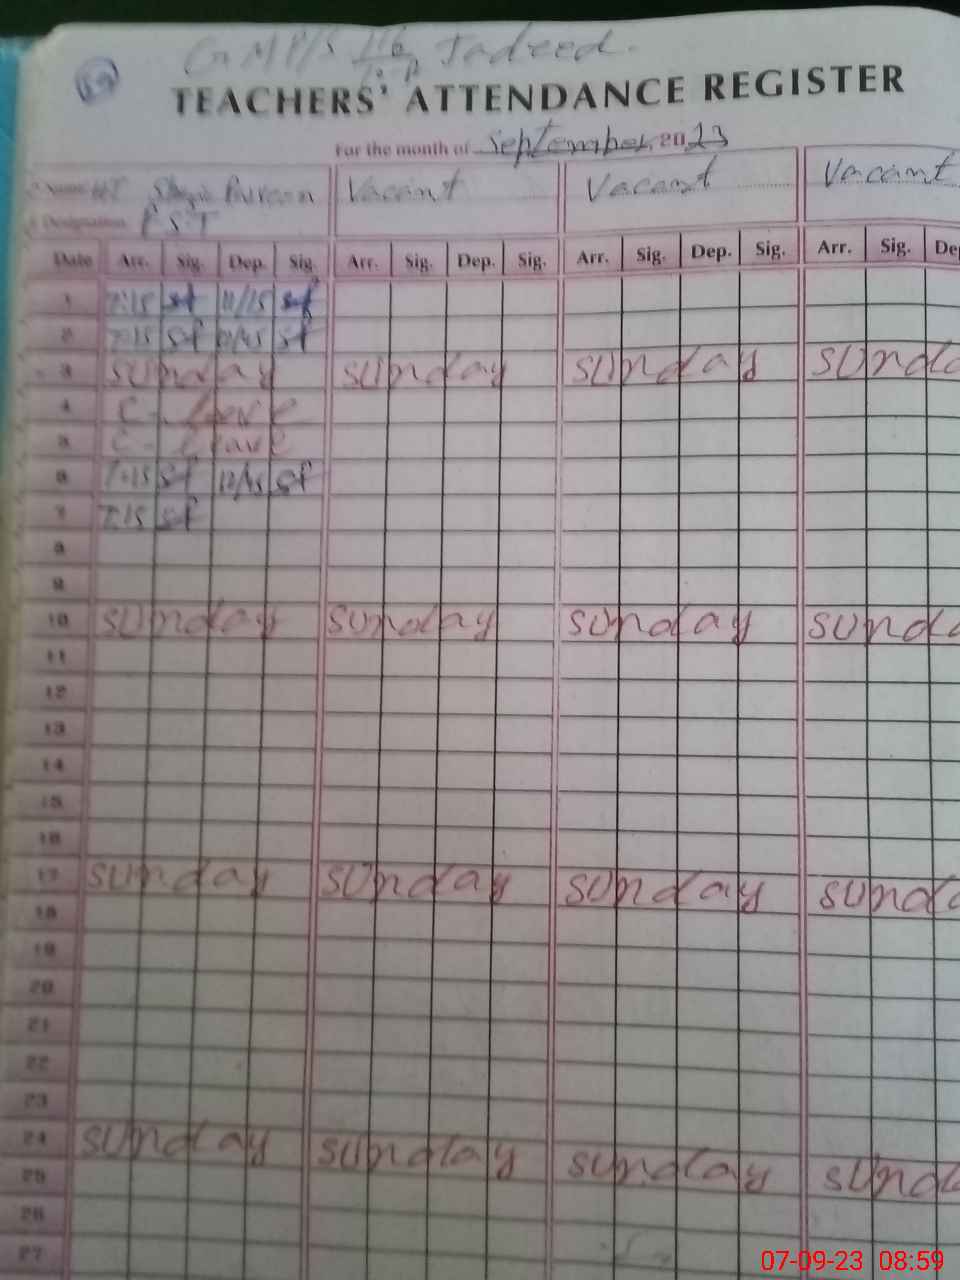 GMP/S 116 Jadeed.
TEACHERS' ATTENDANCE REGISTER
For the month of September 2023
Name HT Parveen Vacant Vacant Vacant
Designation PST
Date Arr. Sig. Dep. Sig. Arr. Sig. Dep. Sig. Arr. Sig. Dep. Sig. Arr. Sig.
1 7:15 sf 11/15 sf
2 7:15 sf sf
3 sunday sunday sunday
4 C. Leave
5 C- Leave
6 7:15 sf 12/45 sf
7 7:15 sf
8
9
10 sunday sunday sunday
11
12
13
14
15
16
17 sunday sunday sunday
18
19
20
21
22
23
24 sunday sunday sunday
25
26
27
07-09-23 08:59